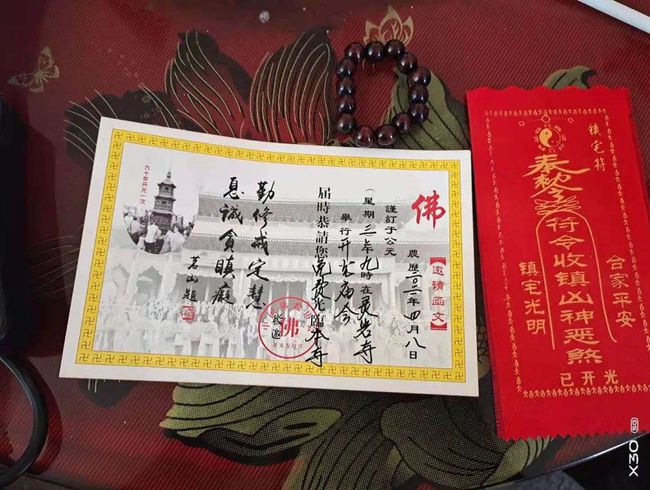 佛
【邀請函文】
農歷二〇二一年四月八日
謹訂于公元
(星期三)上午九時在灵光寺
舉行开光庙会
届時恭請您免费光臨本寺
佛
勤修戒定慧
息滅貪瞋癡
茗山題
六十年开光一次
镇宅符
奉敕令
符令收镇凶神恶煞
合家平安
镇宅光明
已开光
X30